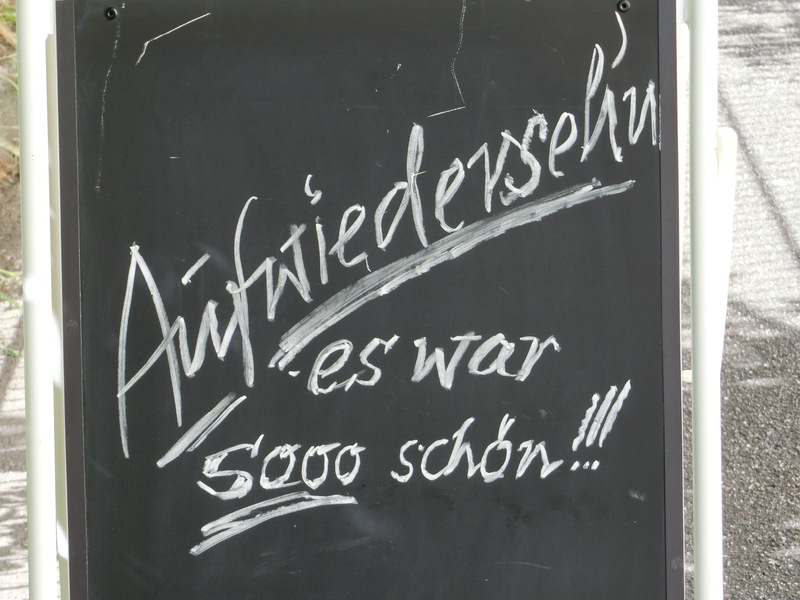 Aufwiederseh'n
es war
sooo schön!!!